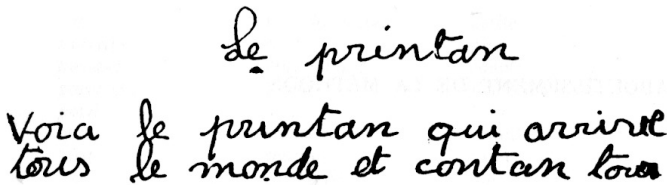 Le printan
Voia le printan qui arrive
tous le monde et contan tous